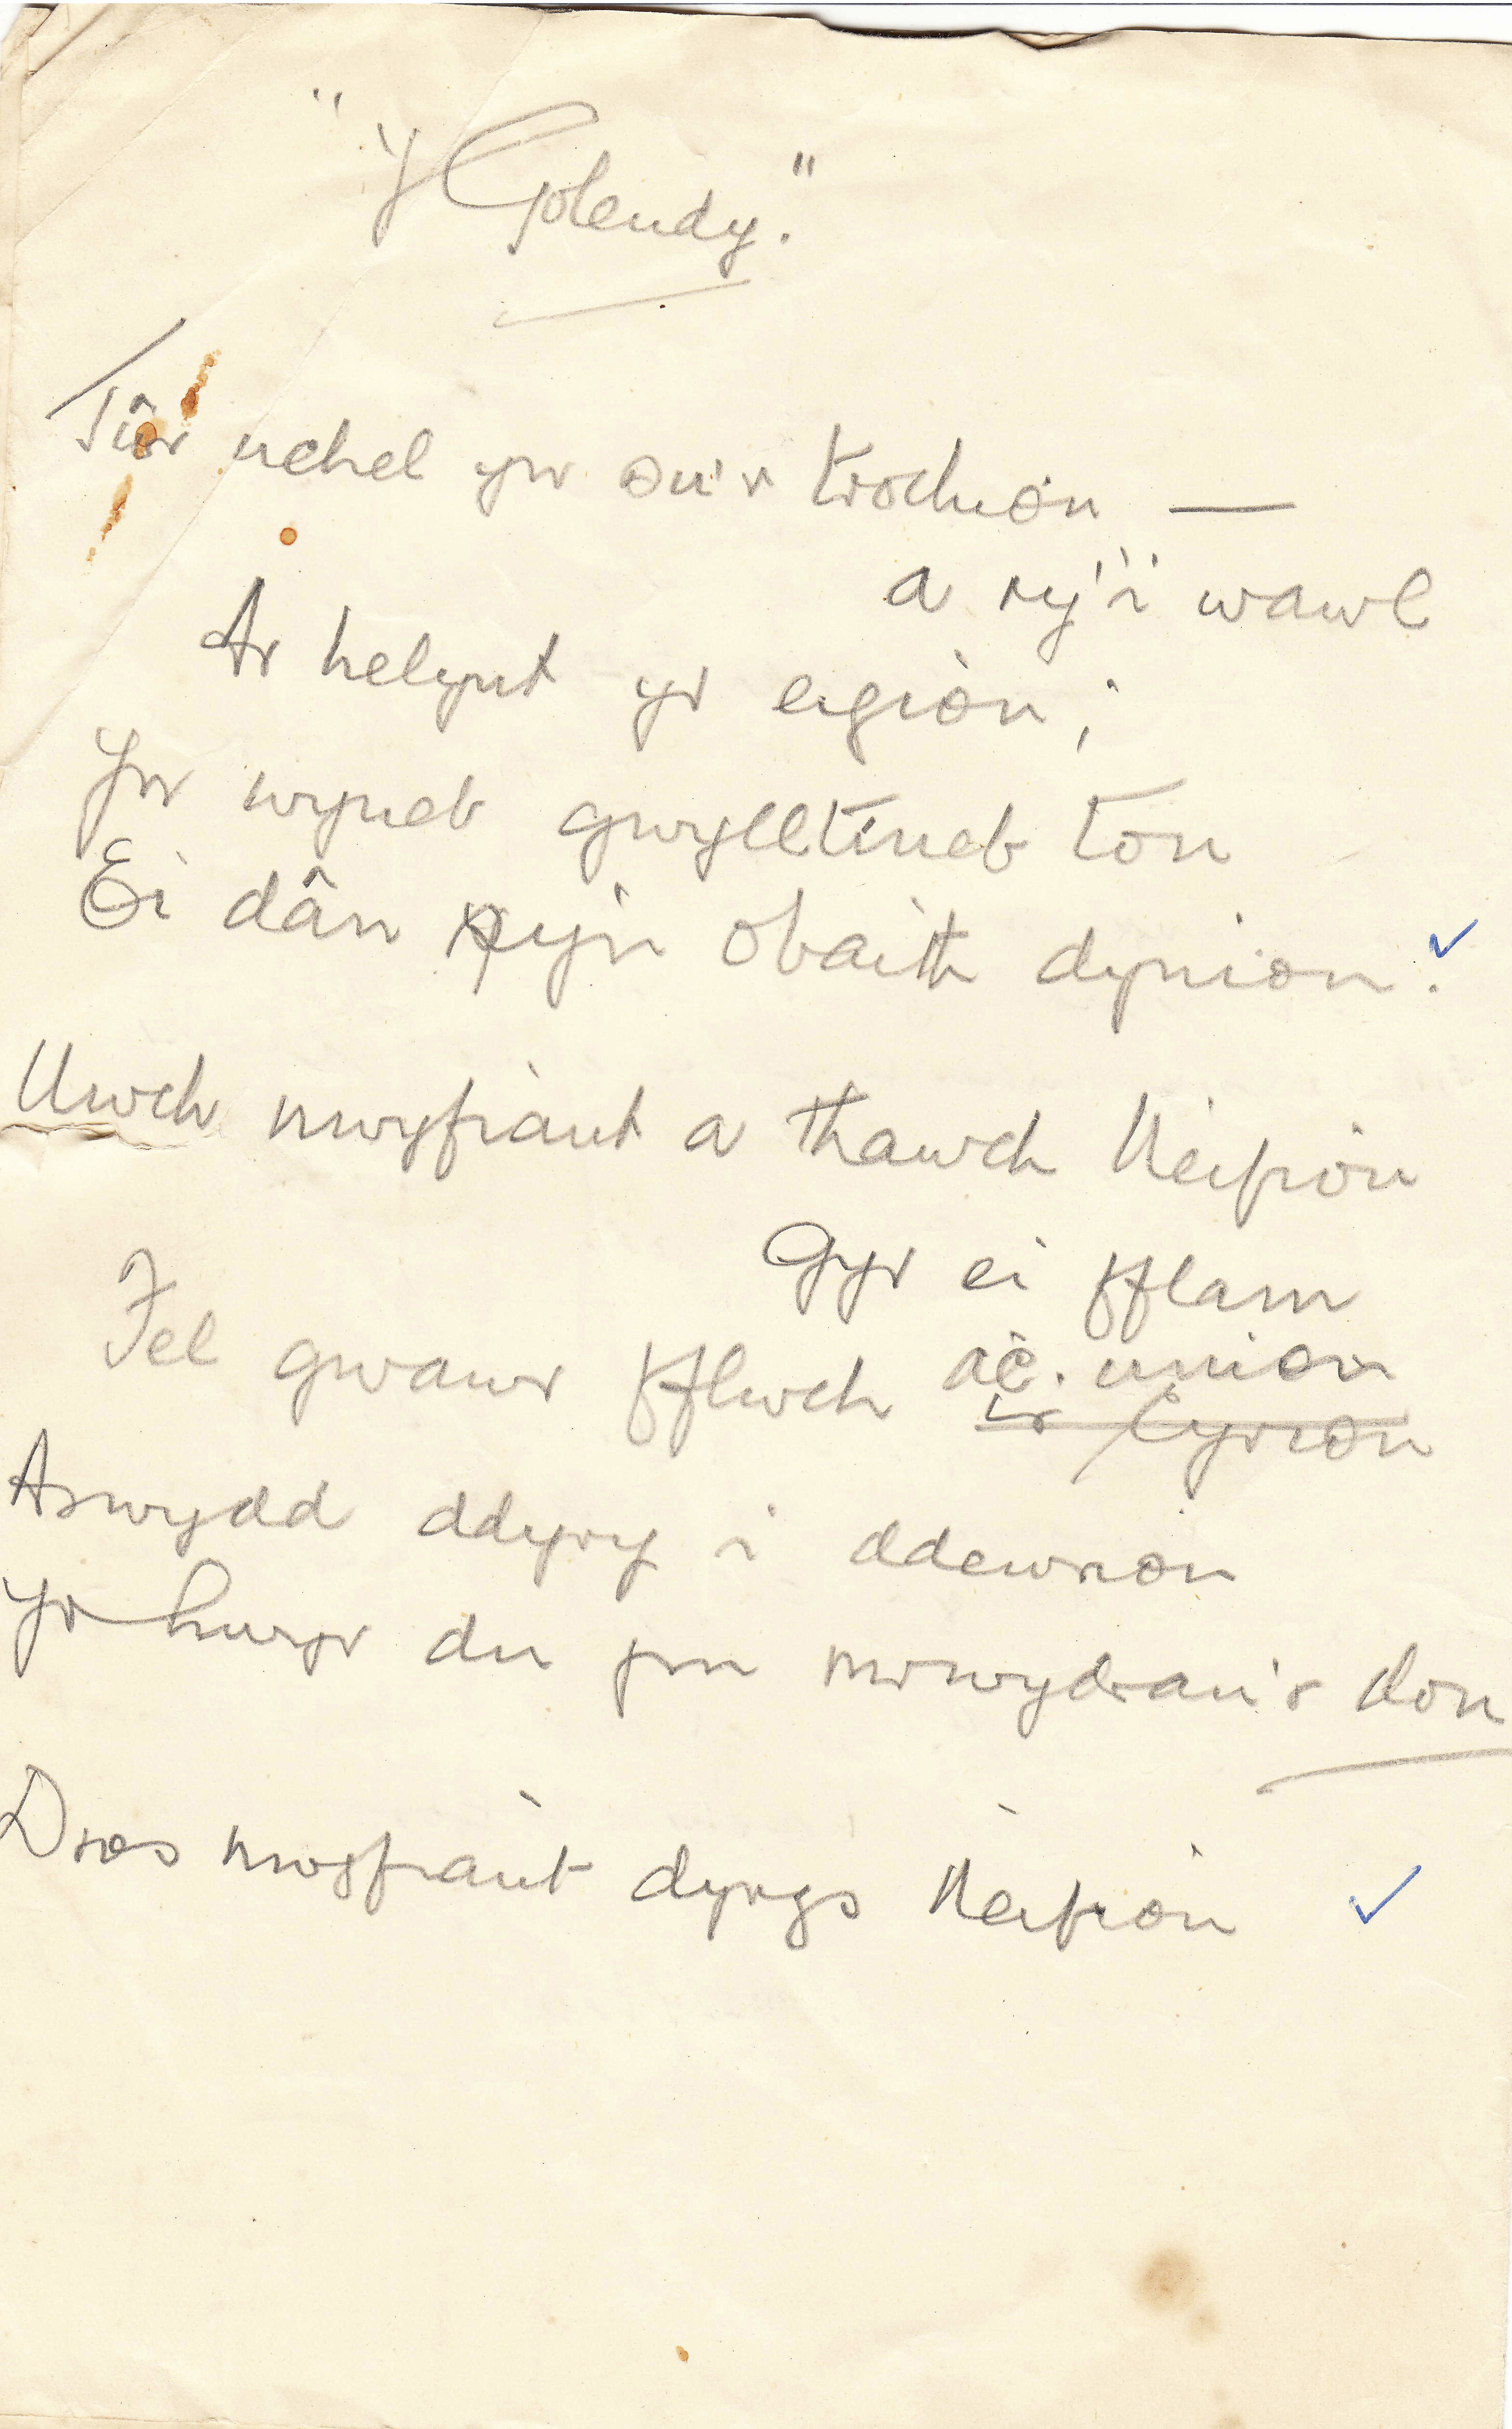 "Y Golendy."
Tŵr uchel yw su'r trochion —
a ry'i wawl
Ar helynt yr eigion;
Yw wyneb gwylltineb ton
Ei dân ry'n obaith dynion.
Uwch nwyfiant a thawch Neifion
Gyr ei fflam
Fel gwawr fflwch ac union
i'r Cyrion
Arwydd ddyry i ddewrion
Yr hwyr du pan
Dros nwyfiant dyrys Neifion